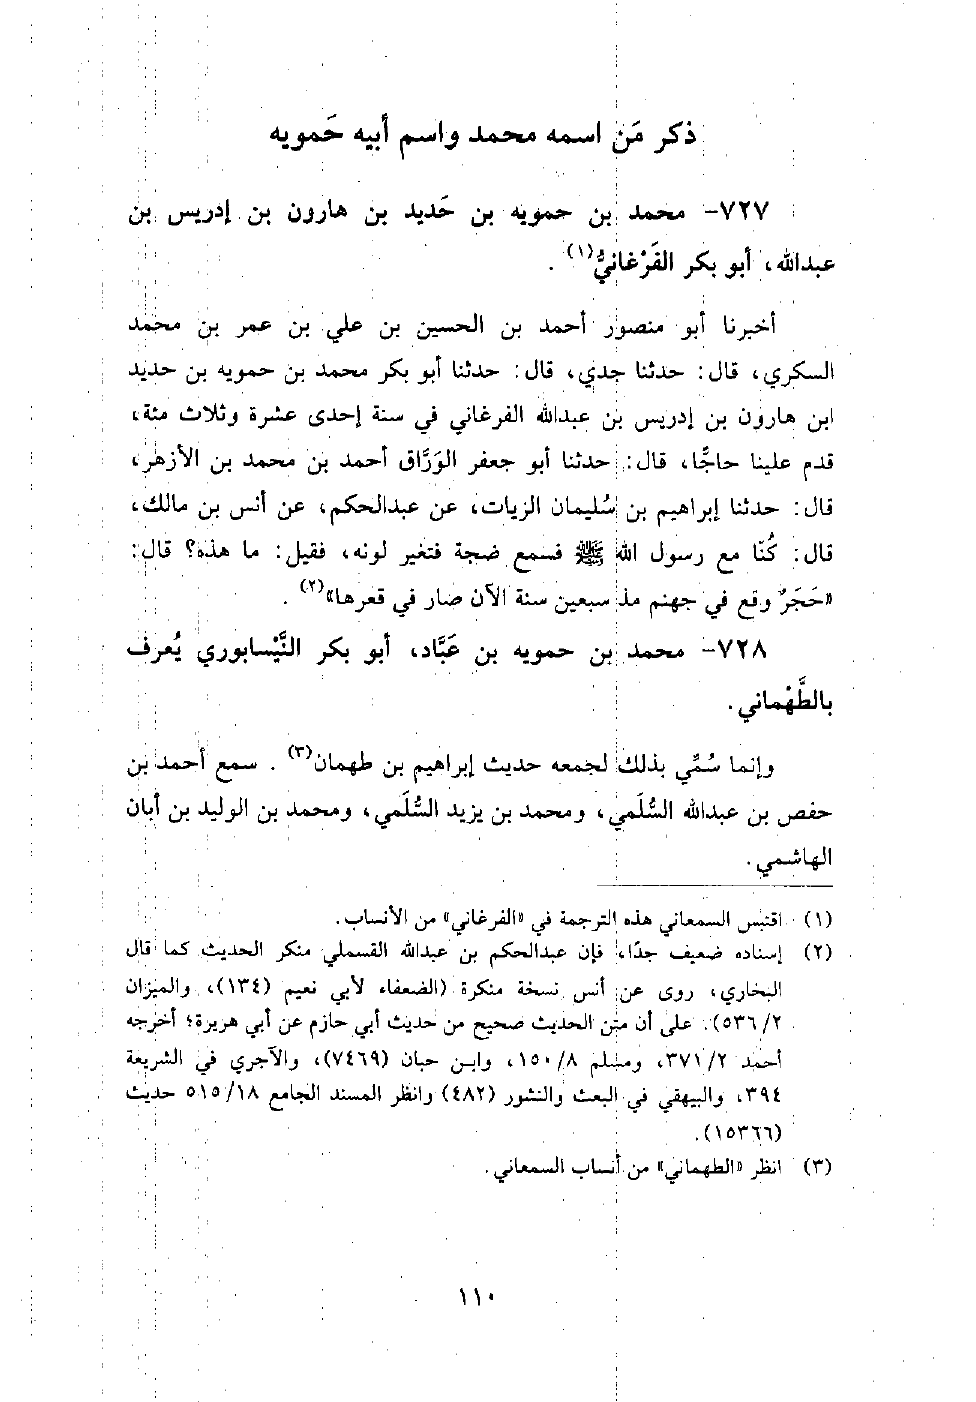 ذكر مَن اسمه محمد واسم أبيه حَمويه
٧٢٧- محمد بن حمويه بن حَديد بن هارون بن إدريس بن
عبدالله، أبو بكر الفَرْغانيُّ(١) .
أخبرنا أبو منصور أحمد بن الحسين بن علي بن عمر بن محمد
السكري، قال: حدثنا جدي، قال: حدثنا أبو بكر محمد بن حمويه بن حديد
ابن هارون بن إدريس بن عبدالله الفرغاني في سنة إحدى عشرة وثلاث مئة،
قدم علينا حاجًّا، قال: حدثنا أبو جعفر الوَرَّاق أحمد بن محمد بن الأزهر،
قال: حدثنا إبراهيم بن سُليمان الزيات، عن عبدالحكم، عن أنس بن مالك،
قال: كُنّا مع رسول الله ﷺ فسمع ضجة فتغير لونه، فقيل: ما هذه؟ قال:
«حَجَرٌ وقع في جهنم مذ سبعين سنة الآن صار في قعرها»(٢) .
٧٢٨- محمد بن حمويه بن عَبَّاد، أبو بكر النَّيْسابوري يُعرف
بالطَّهْماني.
وإنما سُمِّي بذلك لجمعه حديث إبراهيم بن طهمان(٣) . سمع أحمد بن
حفص بن عبدالله السُّلَمي، ومحمد بن يزيد السُّلَمي، ومحمد بن الوليد بن أبان
الهاشمي.
(١) اقتبس السمعاني هذه الترجمة في «الفرغاني» من الأنساب.
(٢) إسناده ضعيف جدًا، فإن عبدالحكم بن عبدالله القسملي منكر الحديث كما قال
البخاري، روى عن أنس نسخة منكرة (الضعفاء لأبي نعيم (١٣٤)، والميزان
٢/ ٥٣٦). على أن متن الحديث صحيح من حديث أبي حازم عن أبي هريرة؛ أخرجه
أحمد ٢/ ٣٧١، ومسلم ٨/ ١٥٠، وابن حبان (٧٤٦٩)، والآجري في الشريعة
٣٩٤، والبيهقي في البعث والنشور (٤٨٢) وانظر المسند الجامع ١٨/ ٥١٥ حديث
(١٥٣٦٦).
(٣) انظر «الطهماني» من أنساب السمعاني.
١١٠